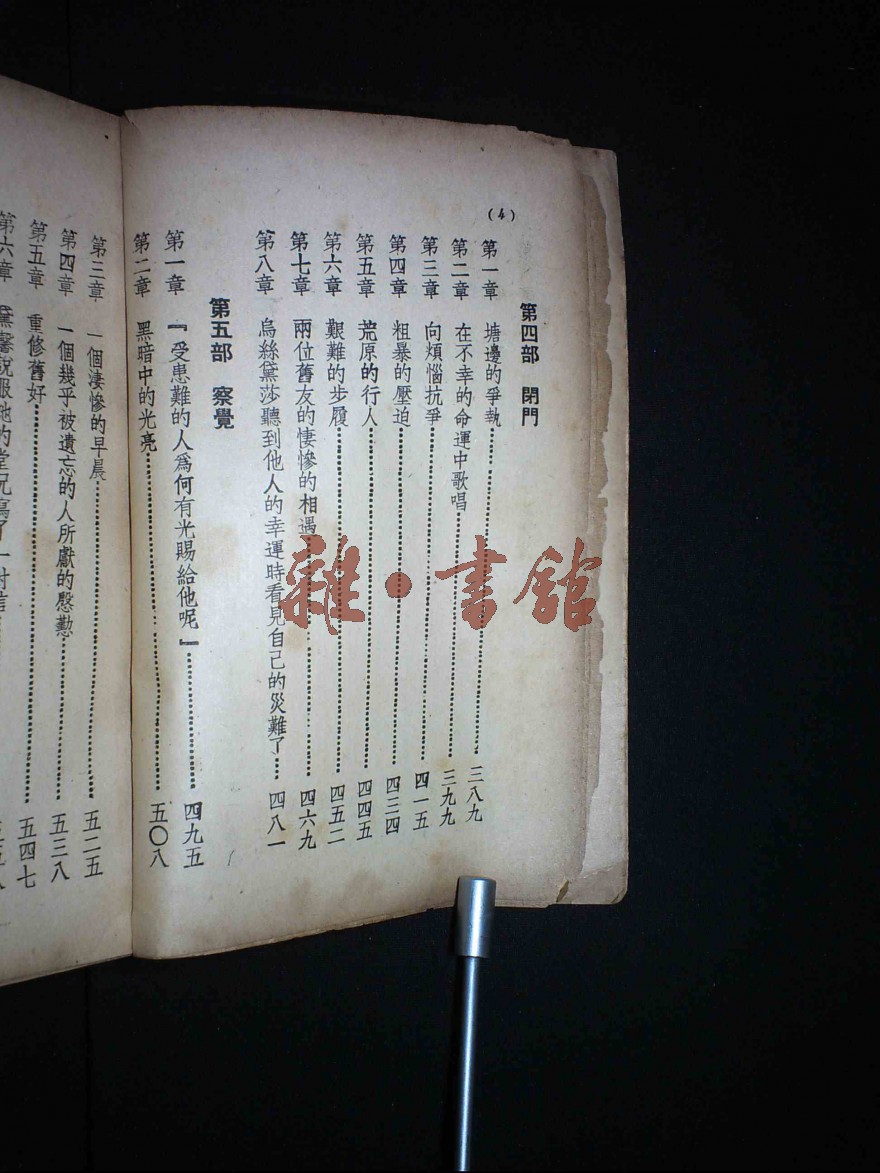 (4)
第四部 閉門
第一章 塘邊的爭執 三八九
第二章 在不幸的命運中歌唱 三九九
第三章 向煩惱抗爭 四一五
第四章 粗暴的壓迫 四三四
第五章 荒原的行人 四四五
第六章 艱難的步履 四五二
第七章 兩位舊友的悽慘的相遇 四六九
第八章 烏絲黛莎聽到他人的幸運時看見自己的災難了 四八一
第五部 察覺
第一章 『受患難的人爲何有光賜給他呢』 四九五
第二章 黑暗中的光亮 五〇八
第三章 一個淒慘的早晨 五二五
第四章 一個幾乎被遺忘的人所獻的慇懃 五三八
第五章 重修舊好 五四七
第六章
雜·書館